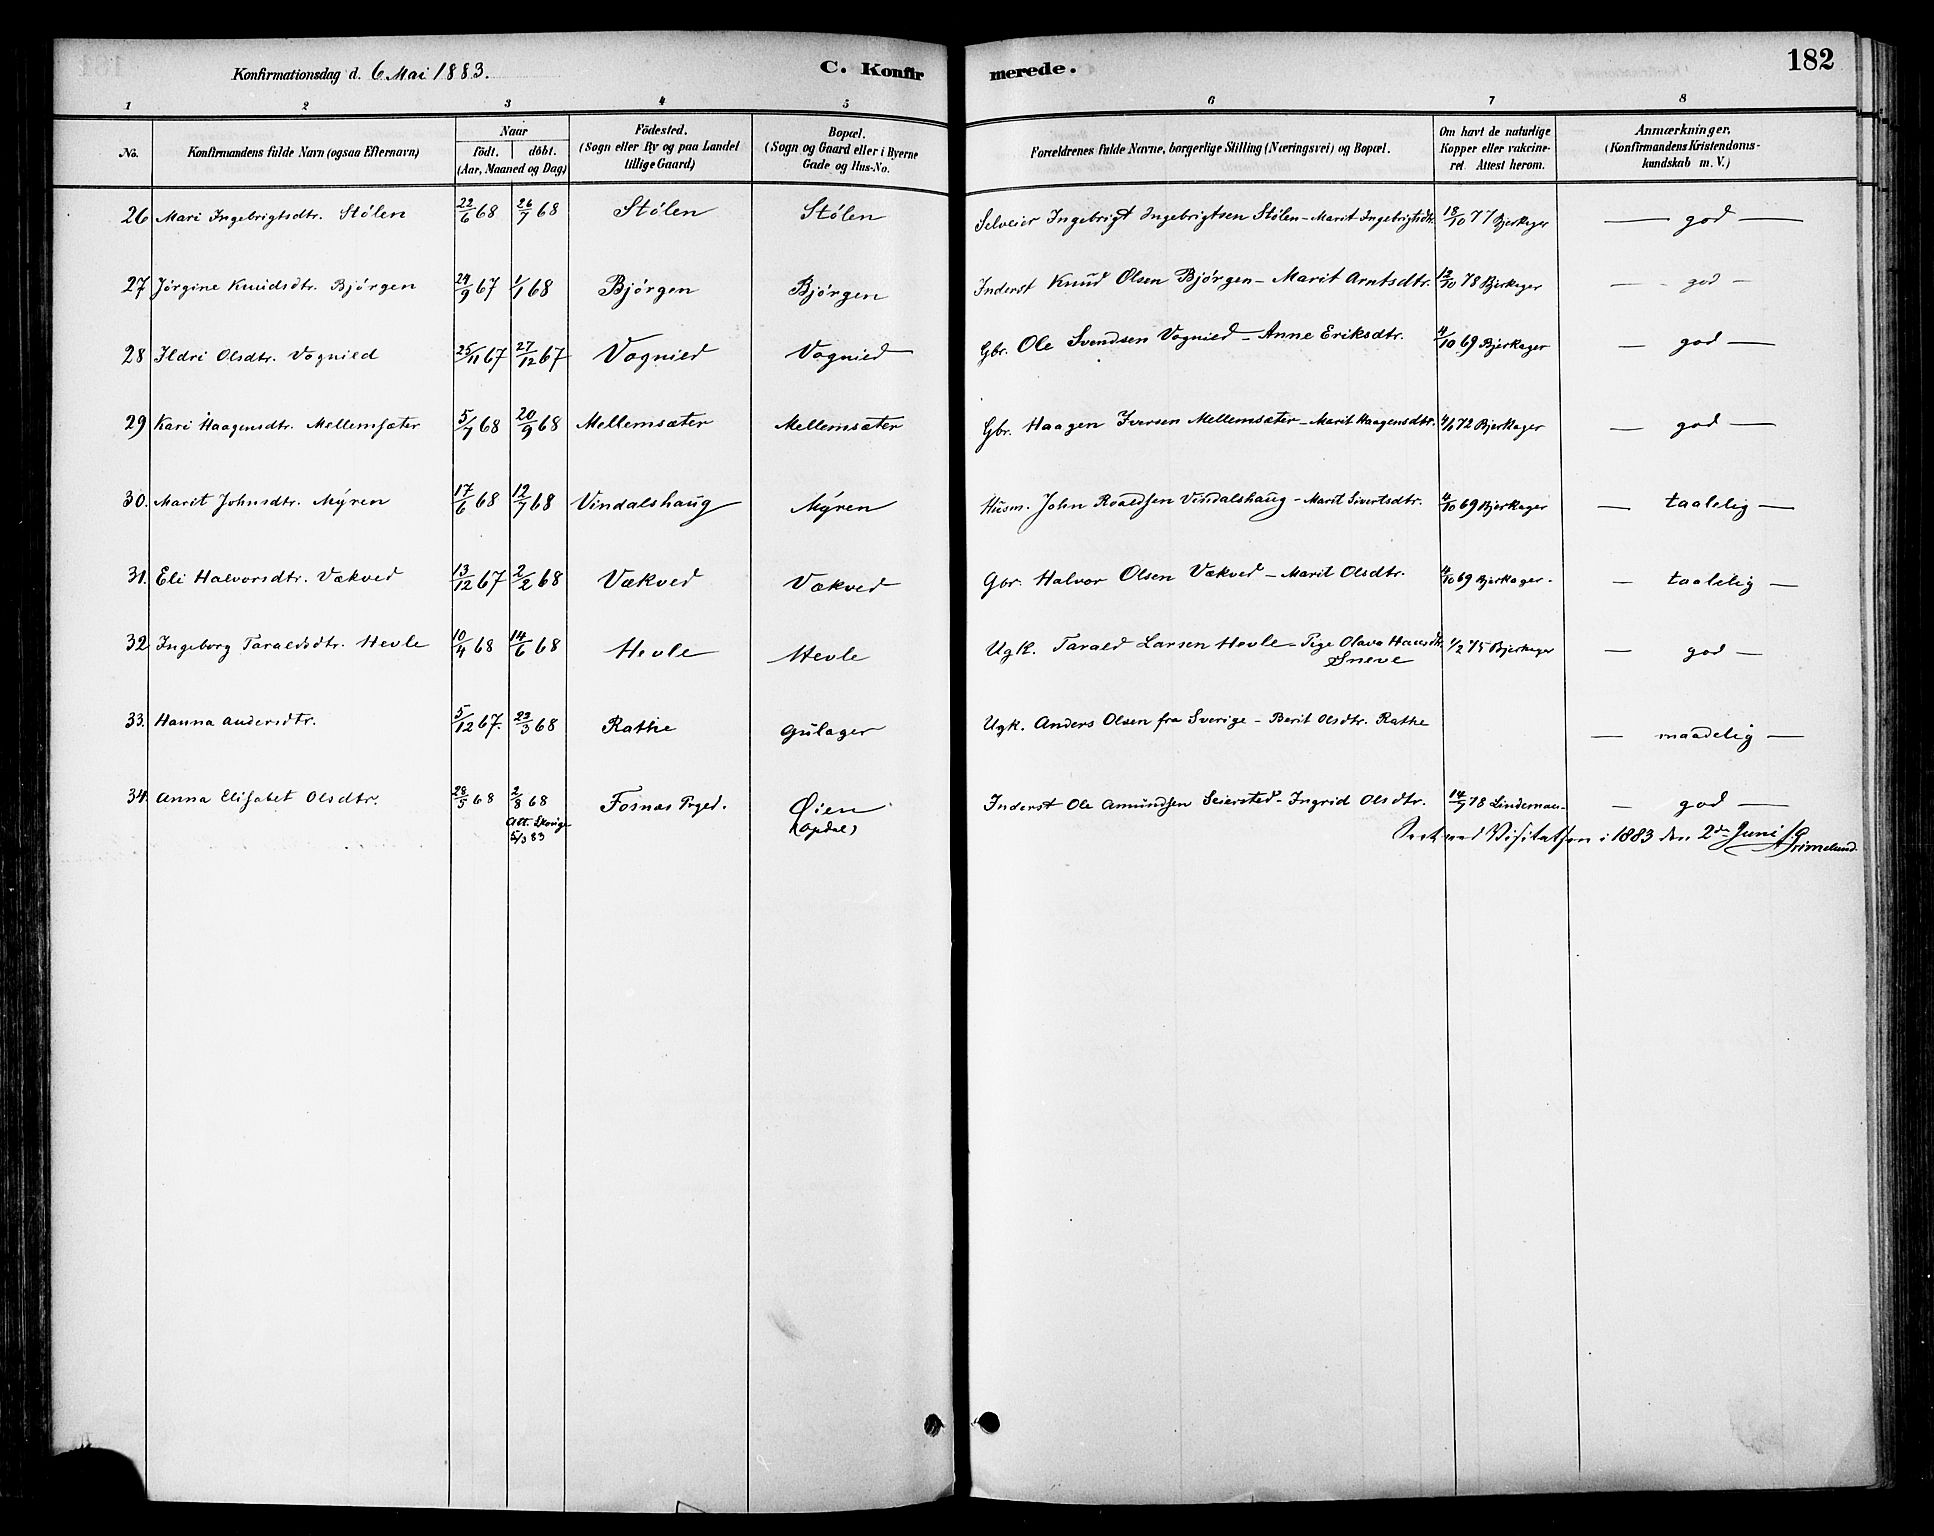 Konfirmationsdag d. 6 Mai 1883. C. Konfir merede. 182
1 2 3 4 5 6 7 8
No. Konfirmandens fulde Navn (ogsaa Efternavn) Naar födt. döbt. (Aar, Maaned og Dag) Födested. (Sogn eller By og paa Landet tillige Gaard) Bopæl. (Sogn og Gaard eller i Byerne Gade og Hus-No. Forældrenes fulde Navne, borgerlige Stilling (Næringsvei) og Bopæl. Om havt de naturlige Kopper eller vakcineret. Attest herom. Anmærkninger, (Konfirmandens Kristendomskundskab m. V.)
26 Mari Ingebrigtsdtr. Stölen 22/6 68 26/7 68 Stölen Stölen Selveier Ingebrigt Ingebrigtsen Stölen - Marit Ingebrigtsdtr. 18/10 77 Bjerkager — god —
27 Jörgine Knudsdtr. Björgen 24/9 67 1/1 68 Björgen Björgen Inderst Knud Olsen Björgen - Marit Arntsdtr. 12/10 78 Bjerkager — god —
28 Ildri Olsdtr. Vognild 25/11 67 27/12 67 Vognild Vognild Gbr. Ole Svendsen Vognild - Anne Eriksdtr. 4/10 69 Bjerkager — god —
29 Kari Haagensdtr. Mellemsæter 5/7 68 20/9 68 Mellemsæter Mellemsæter Gbr. Haagen Iversen Mellemsæter - Marit Haagensdtr. 72 Bjerkager — god —
30. Marit Johnsdtr. Myren 17/6 68 12/7 68 Vindalshaug Myren Husm. John Roaldsen Vindalshaug - Marit Sivertsdtr. 4/10 69 Bjerkager — taalelig —
31. Eli Halvorsdtr. Vækved 13/12 67 2/2 68 Vækved Vækved Gbr. Halvor Olsen Vækved - Marit Olsdtr. 4/10 69 Bjerkager. — taalelig —
32 Ingeborg Taraldsdtr. Hevle 10/4 68 14/6 68 Hevle Hevle Ugk. Tarald Larsen Hevle - Pige Olava Hansdtr. Sneve 1/2 75 Bjerkager — god —
33. Hanna Andersdtr. 5/12 67. 23/3 68 Rathe Gulager Ugk. Anders Olsen fra Sverige - Berit Olsdtr. Rathe — maadelig —
34. Anna Elisabet Olsdtr. 28/5 68 2/8 68 Fosnæs Prgd. Øien Inderst Ole Amundsen Seiersted - Ingrid Olsdtr. 14/9 78 Lindeman — god —
Att. 5/3 83 (Opdal)
Visitatsen i 1883 den 2den Juni Grimelund.